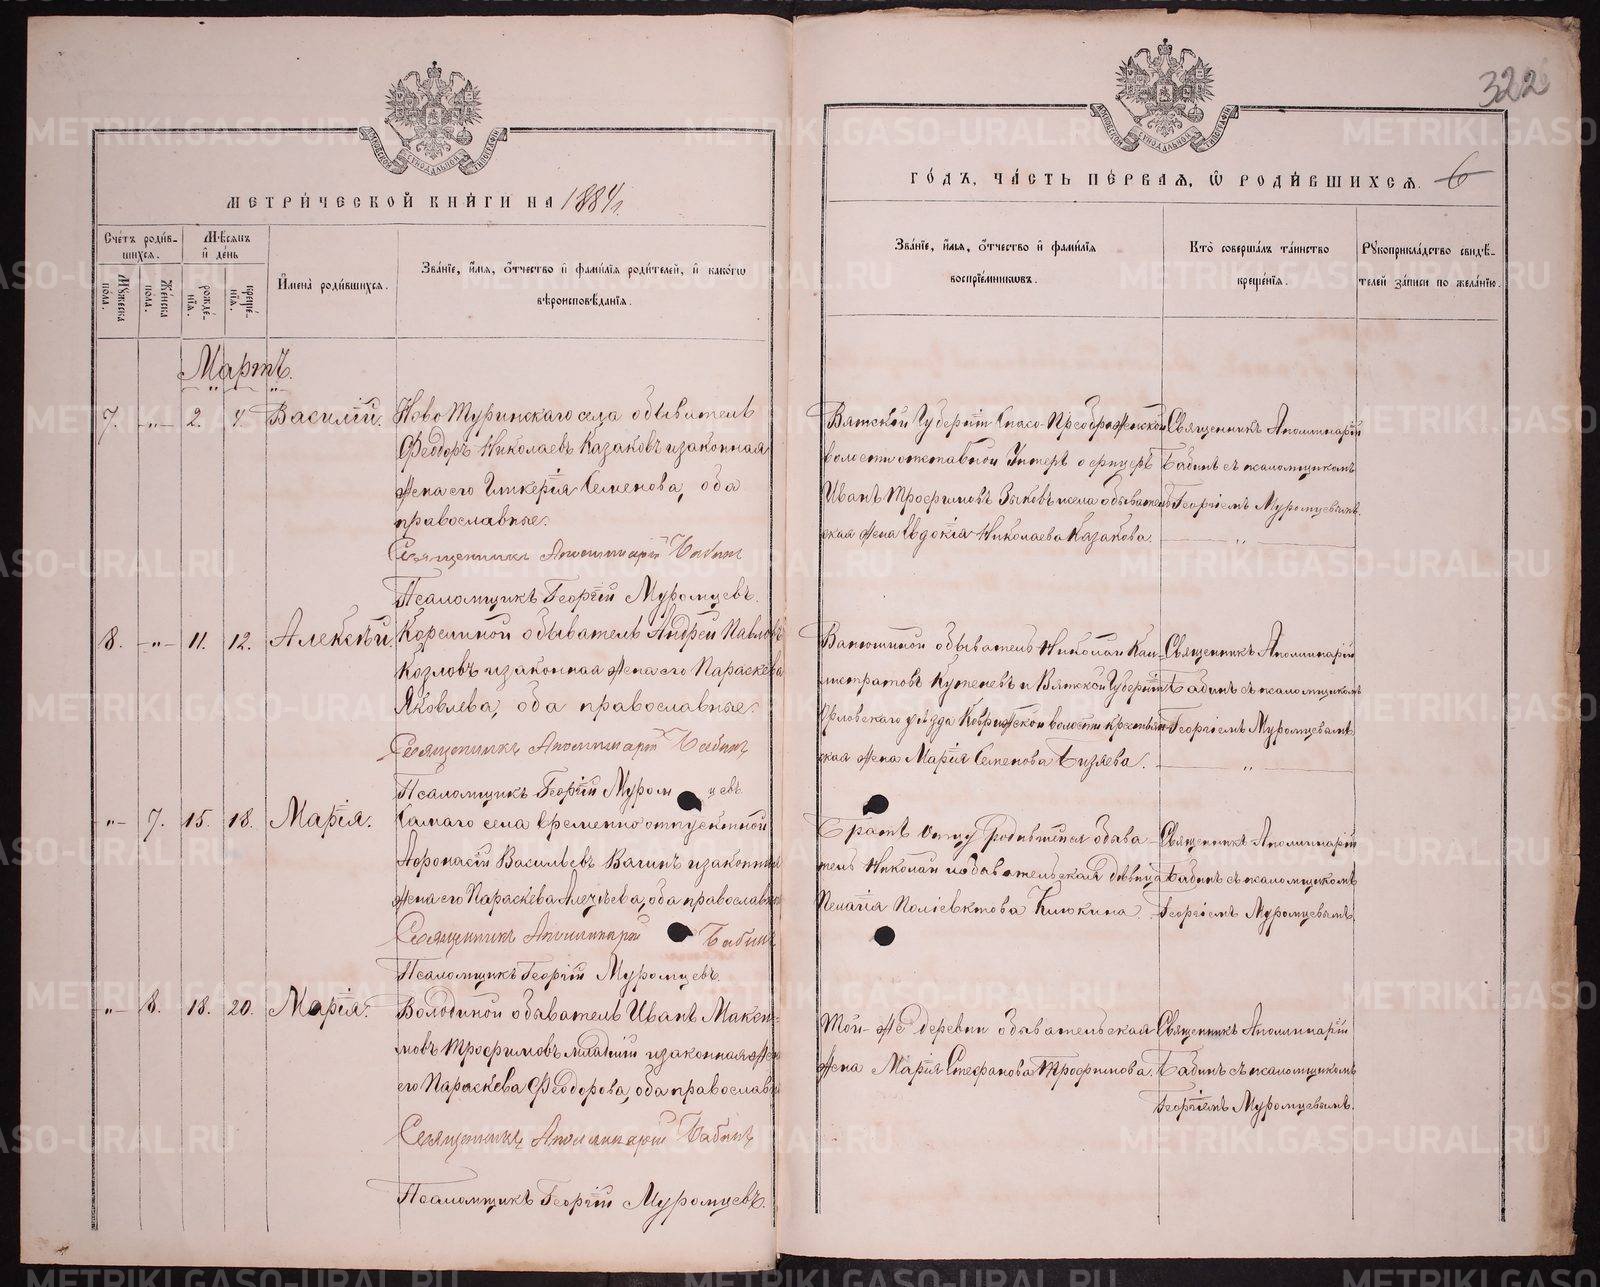 322
МЕТРИ́ЧЕСКОЙ КНИ́ГИ НА 1884 г.
ГО́ДЪ, ЧА́СТЬ ПЕ́РВАЯ, Ѡ РОДИ́ВШИХСЯ. 6
Сче́тъ роди́в-
шихся.
Мужеска пола.
Же́нска пола.
Мѣсяцъ
и́ де́нь
рожде́-
нїя.
креще́-
нїя.
И҆мена̀ роди́вшихся.
Зва́нїе, и҆́мя, ѻ҆́тчество и҆ фами́лїя роди́телей, и҆ како́гѡ
вѣроисповѣ́данїя.
Зва́нїе, и҆́мя, ѻ҆́тчество и҆ фами́лїя
воспрїе́мниковъ.
Кто̀ соверша́лъ та́инство
креще́нїя.
Рꙋкоприкла́дство свидѣ́-
телей за́писи по жела́нїю.
Мартъ.
7. -„- 2. 4. Василій.
Ново Туринскаго села обыватель
Феодоръ Николаевъ Казаковъ и законная
жена его Гликерія Семенова, оба
православные.
Священникъ Аполлинарій Бабинъ
Псаломщикъ Георгій Муромцевъ.
Вятской Губерніи Спасо-Преображенской
волости отставной Унтеръ офицеръ
Иванъ Трофимовъ Зыковъ и села обыватель
ская жена Евдокія Николаева Казакова.
Священникъ Аполлинарій
Бабинъ съ псаломщикомъ
Георгіемъ Муромцевымъ.
8. -„- 11. 12. Алексѣй.
обыватель Андрей Павловъ
Козловъ и законная жена его Параскева
Яковлева, оба православные.
Священникъ Аполлинарій Бабинъ
Псаломщикъ Георгій Муромцевъ
обыватель Николай Кал-
листратовъ и Вятской Губерніи
Орловскаго уѣзда волости крестьян
ская жена Марія Семенова
Священникъ Аполлинарій
Бабинъ съ псаломщикомъ
Георгіемъ Муромцевымъ
-„- 7. 15. 18. Марія.
Самаго села временно отпускной
Афонасій Васильевъ Вагинъ и законная
жена его Параскева Алексѣева, оба православные
Священникъ Аполлинарій Бабинъ
Псаломщикъ Георгій Муромцевъ
Братъ отцу родившейся обыва-
тель Николай и обывательская дѣвица
Пелагія Поліевктова Клюкина
Священникъ Аполлинарій
Бабинъ съ псаломщикомъ
Георгіемъ Муромцевымъ.
-„- 8. 18. 20. Марія.
Володиной обыватель Иванъ Макси-
мовъ Трофимовъ младшій и законная жена
его Параскева Феодорова, оба православные
Священникъ Аполлинарій Бабинъ
Псаломщикъ Георгій Муромцевъ.
Той-же деревни обывательская
жена Марія Стефанова Трофимова.
Священникъ Аполлинарій
Бабинъ съ псаломщикомъ
Георгіемъ Муромцевымъ.
METRIKI.GASO-URAL.RU